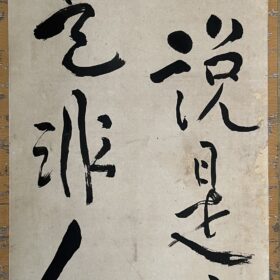 説是
是非人